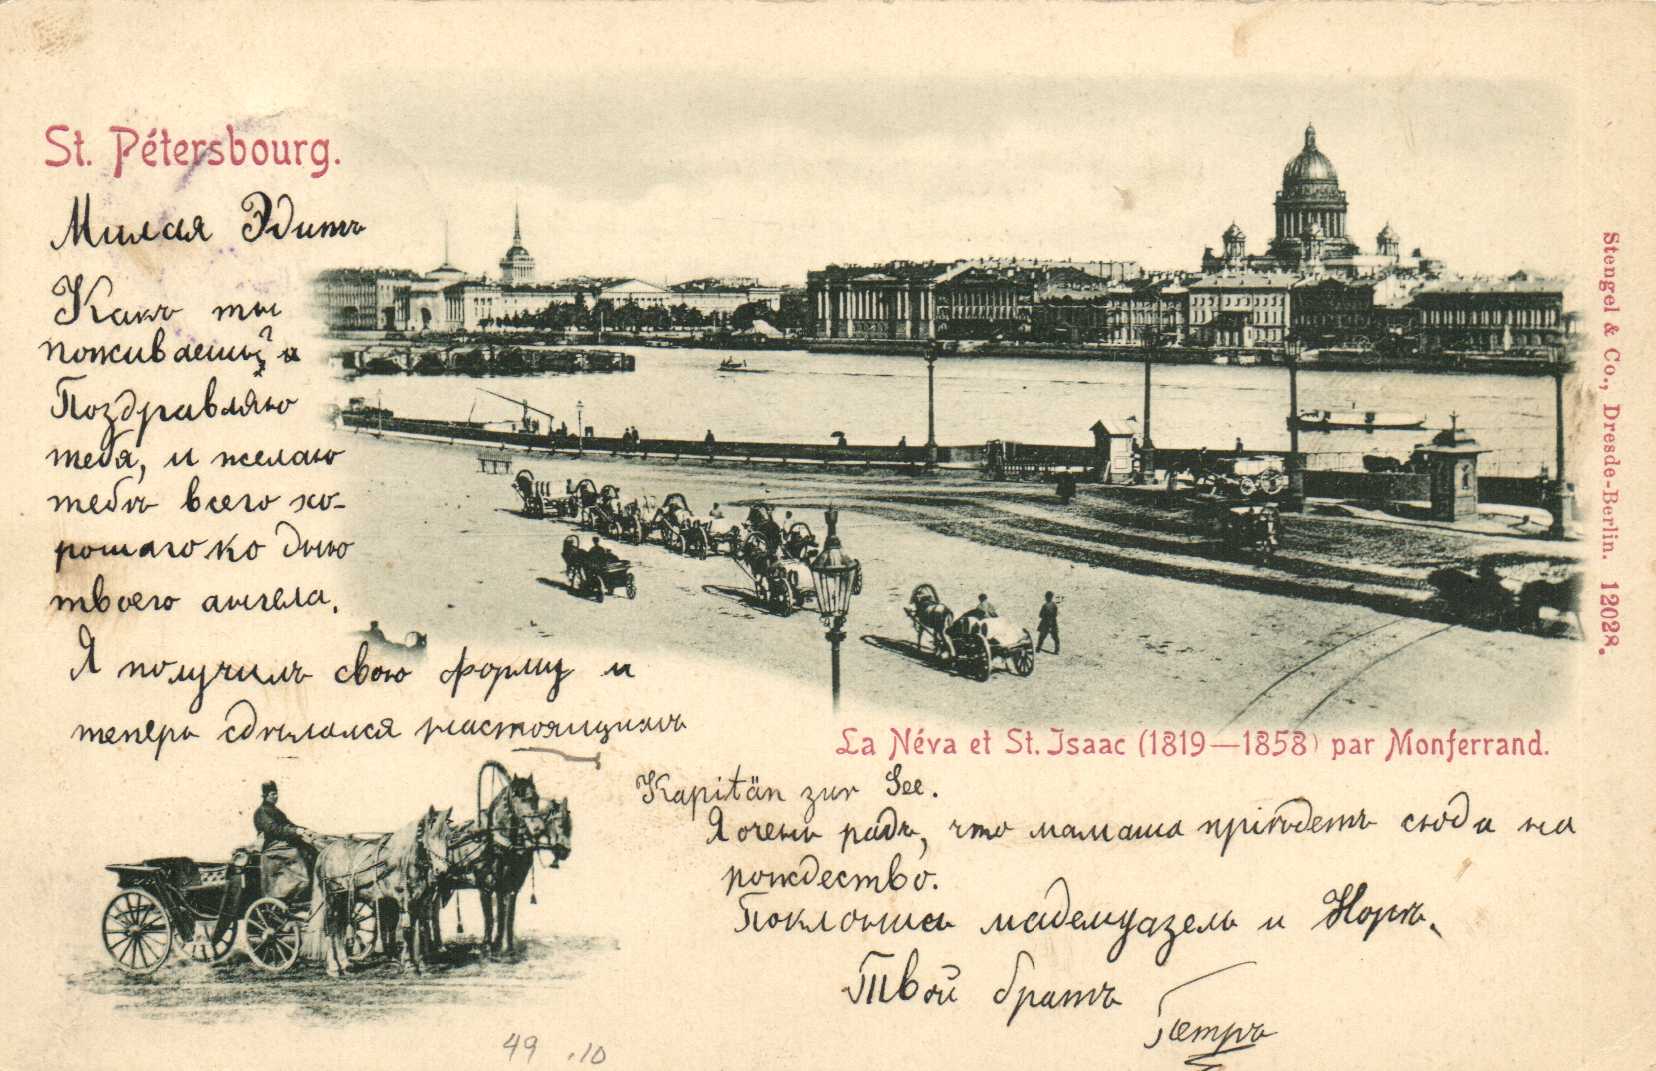 St. Pétersbourg.
Милая Эдитъ
Какъ ты
поживаешь? я
Поздравляю
тебя, и желаю
тебѣ всего хо-
рошаго ко дню
твоего ангела.
Я получилъ свою форму и
теперь сдѣлался настоящимъ
Kapitän zur See.
Я очень радъ, что мамаша пріѣдетъ сюда на
рождество.
Поклонись мадемуазель и Норѣ.
Твой братъ
Петръ
La Néva et St. Isaac (1819—1858) par Monferrand.
Stengel & Co., Dresde-Berlin. 12028.
49 .10